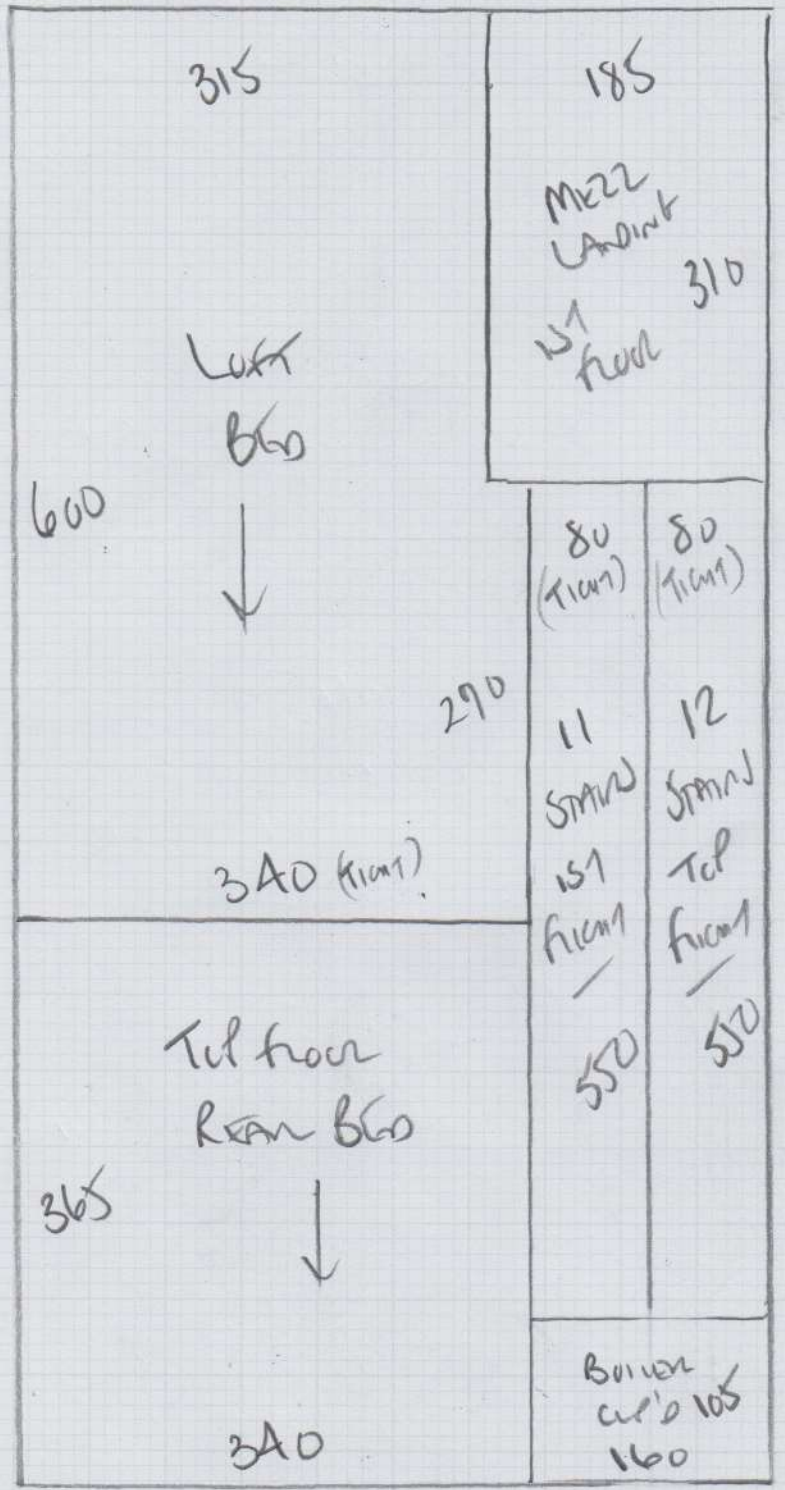 315
185
MEZZ
LANDING
1ST
FLOOR
310
LOFT
BED
600
80
(TIGHT)
80
(TIGHT)
290
11
STAIRS
1ST
FLIGHT
550
12
STAIRS
TOP
FLIGHT
550
340 (TIGHT)
TOP FLOOR
REAR BED
365
340
BOILER
CUP'D 105
160